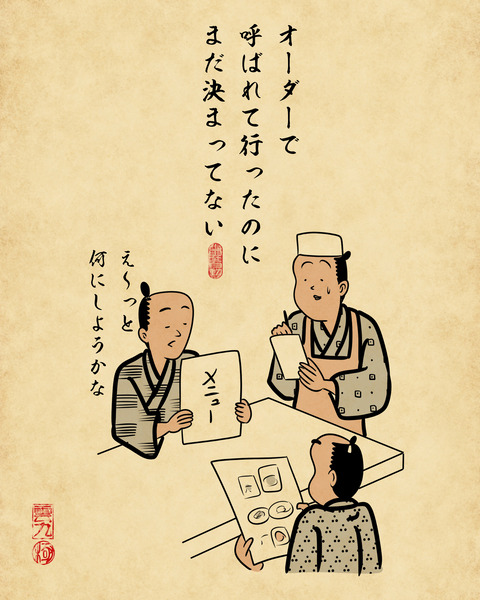 オーダーで
呼ばれて行ったのに
まだ決まってない
え〜っと
何にしようかな
メニュー